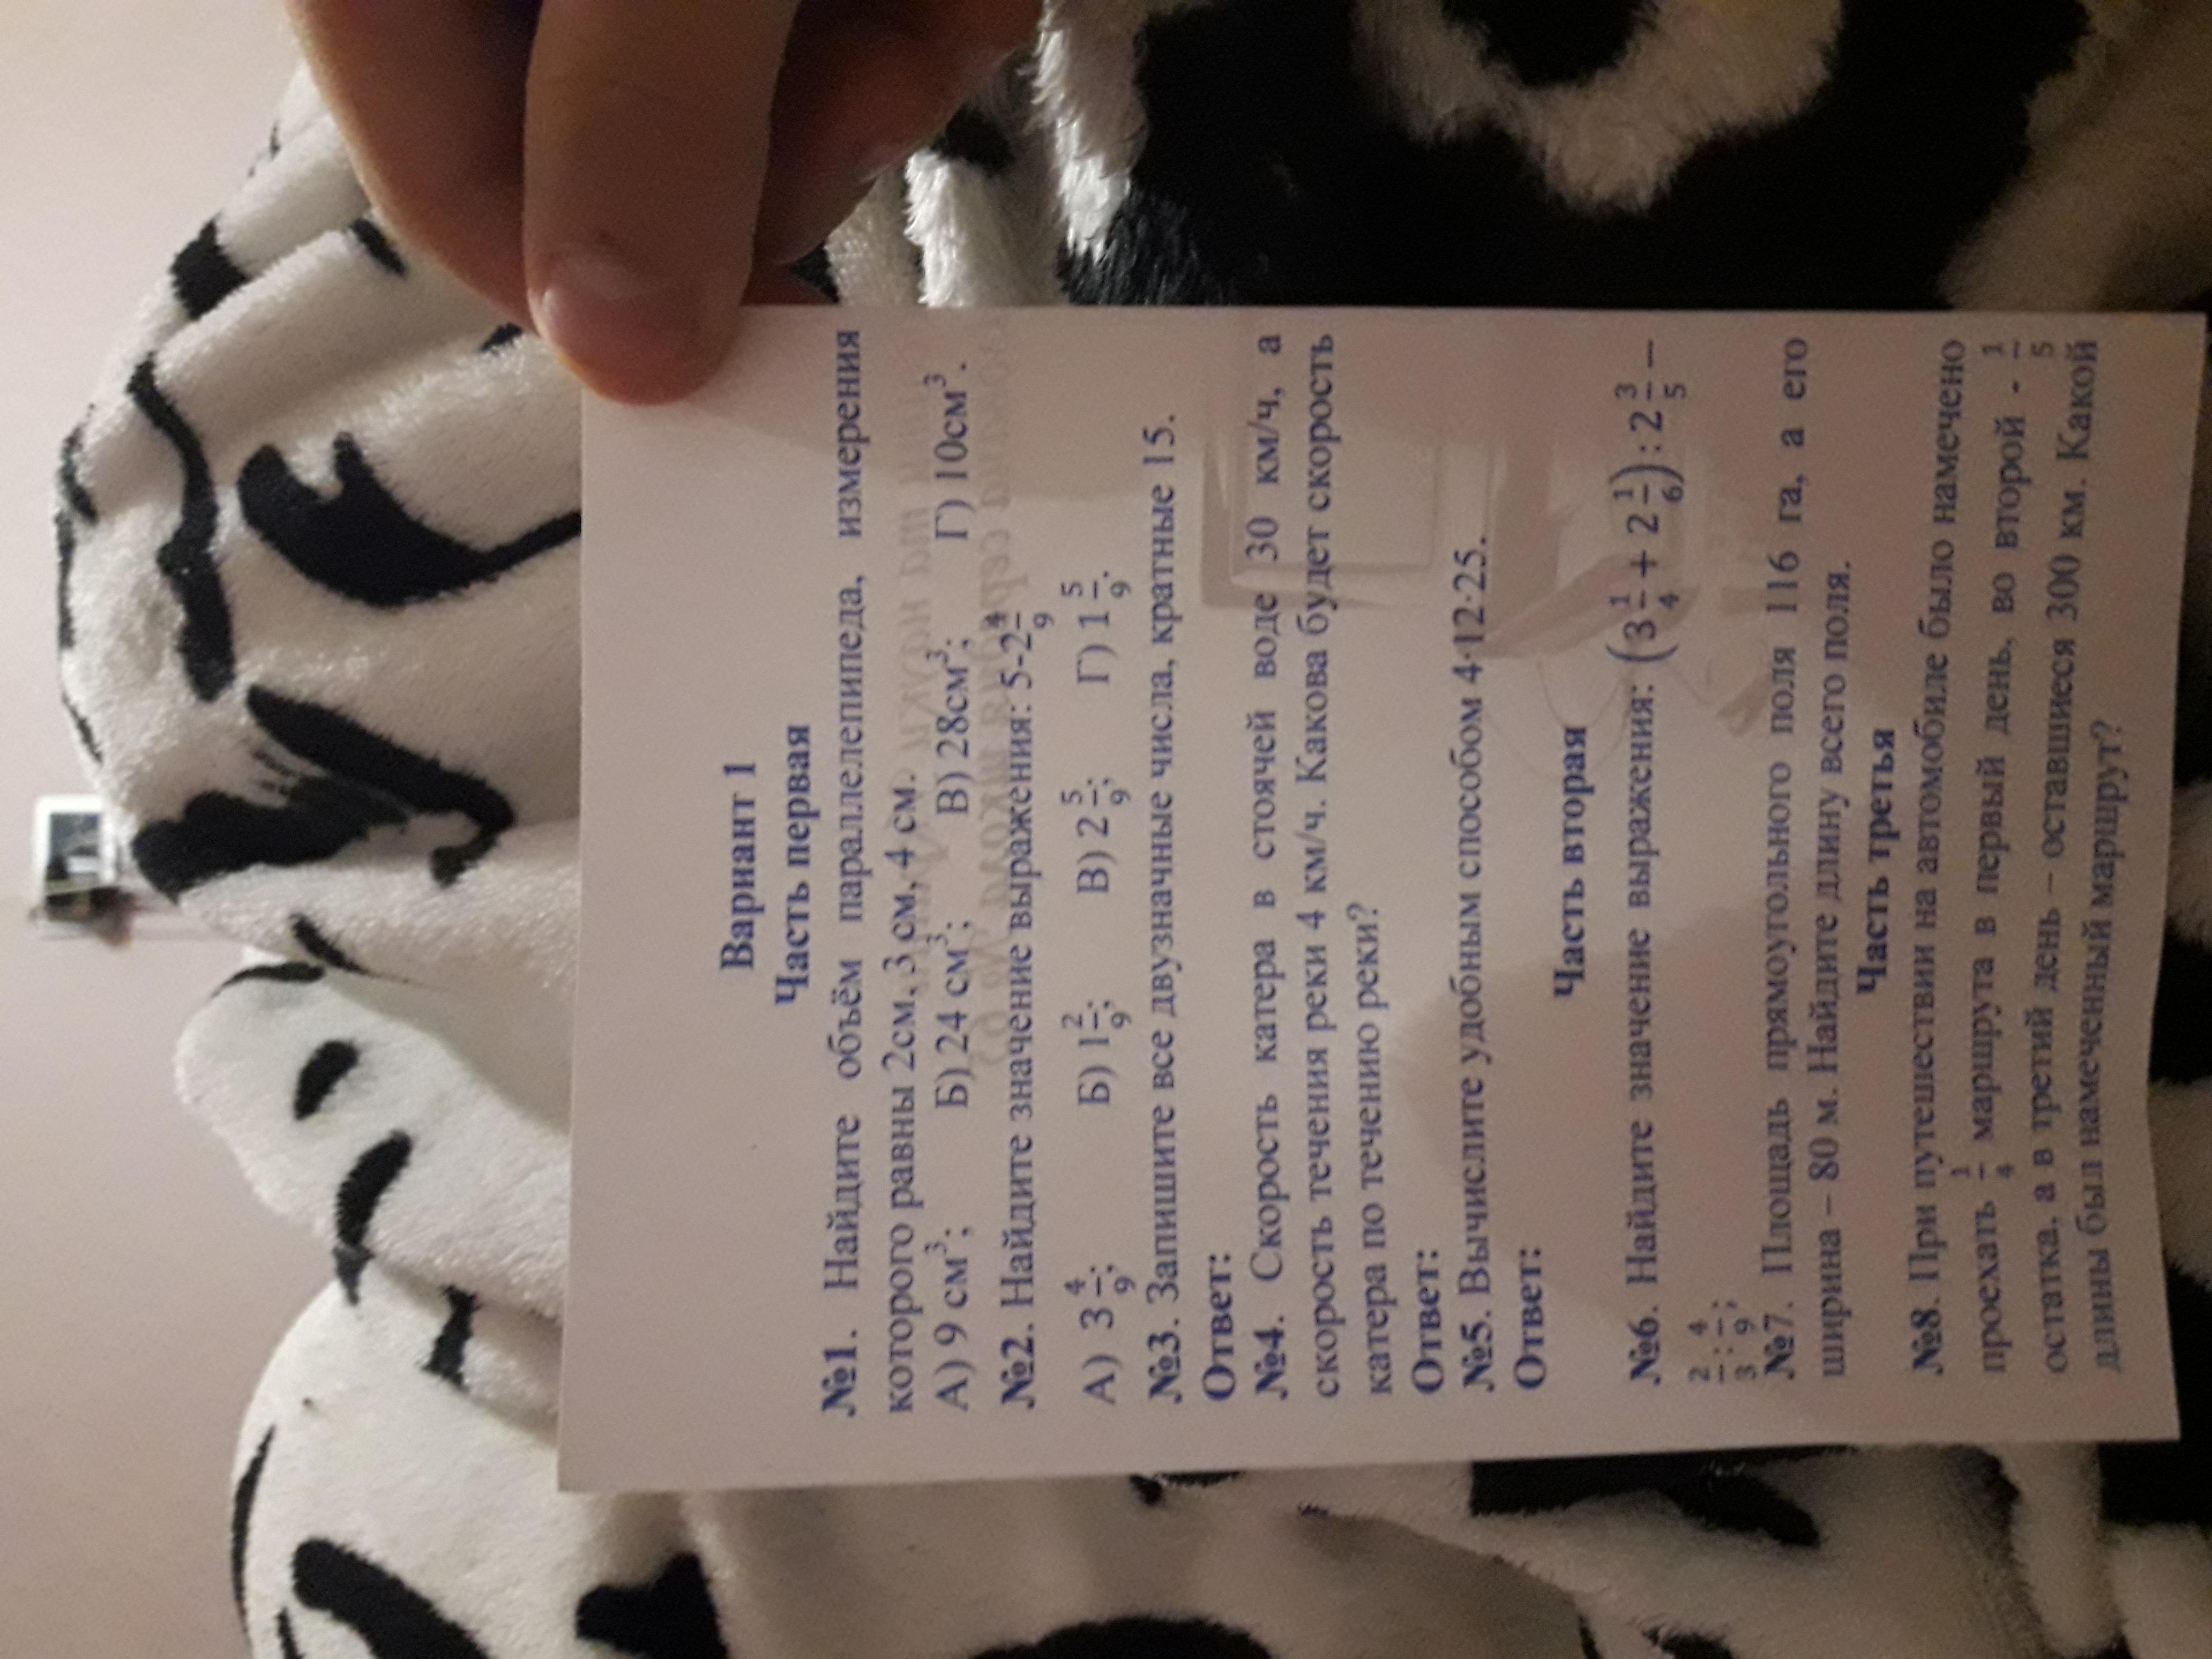 Вариант 1
Часть первая
№1. Найдите объём параллелепипеда, измерения
которого равны 2см, 3 см, 4 см.
А) 9 см³; Б) 24 см³; В) 28см³; Г) 10см³.
№2. Найдите значение выражения: 5-2 4/9
А) 3 4/9; Б) 1 2/9; В) 2 5/9; Г) 1 5/9.
№3. Запишите все двузначные числа, кратные 15.
Ответ:
№4. Скорость катера в стоячей воде 30 км/ч, а
скорость течения реки 4 км/ч. Какова будет скорость
катера по течению реки?
Ответ:
№5. Вычислите удобным способом 4·12·25.
Ответ:
Часть вторая
№6. Найдите значение выражения: (3 1/4 + 2 1/6) : 2 3/5 −
2/3 : 4/9;
№7. Площадь прямоугольного поля 116 га, а его
ширина – 80 м. Найдите длину всего поля.
Часть третья
№8. При путешествии на автомобиле было намечено
проехать 1/4 маршрута в первый день, во второй - 1/5
остатка, а в третий день – оставшиеся 300 км. Какой
длины был намеченный маршрут?